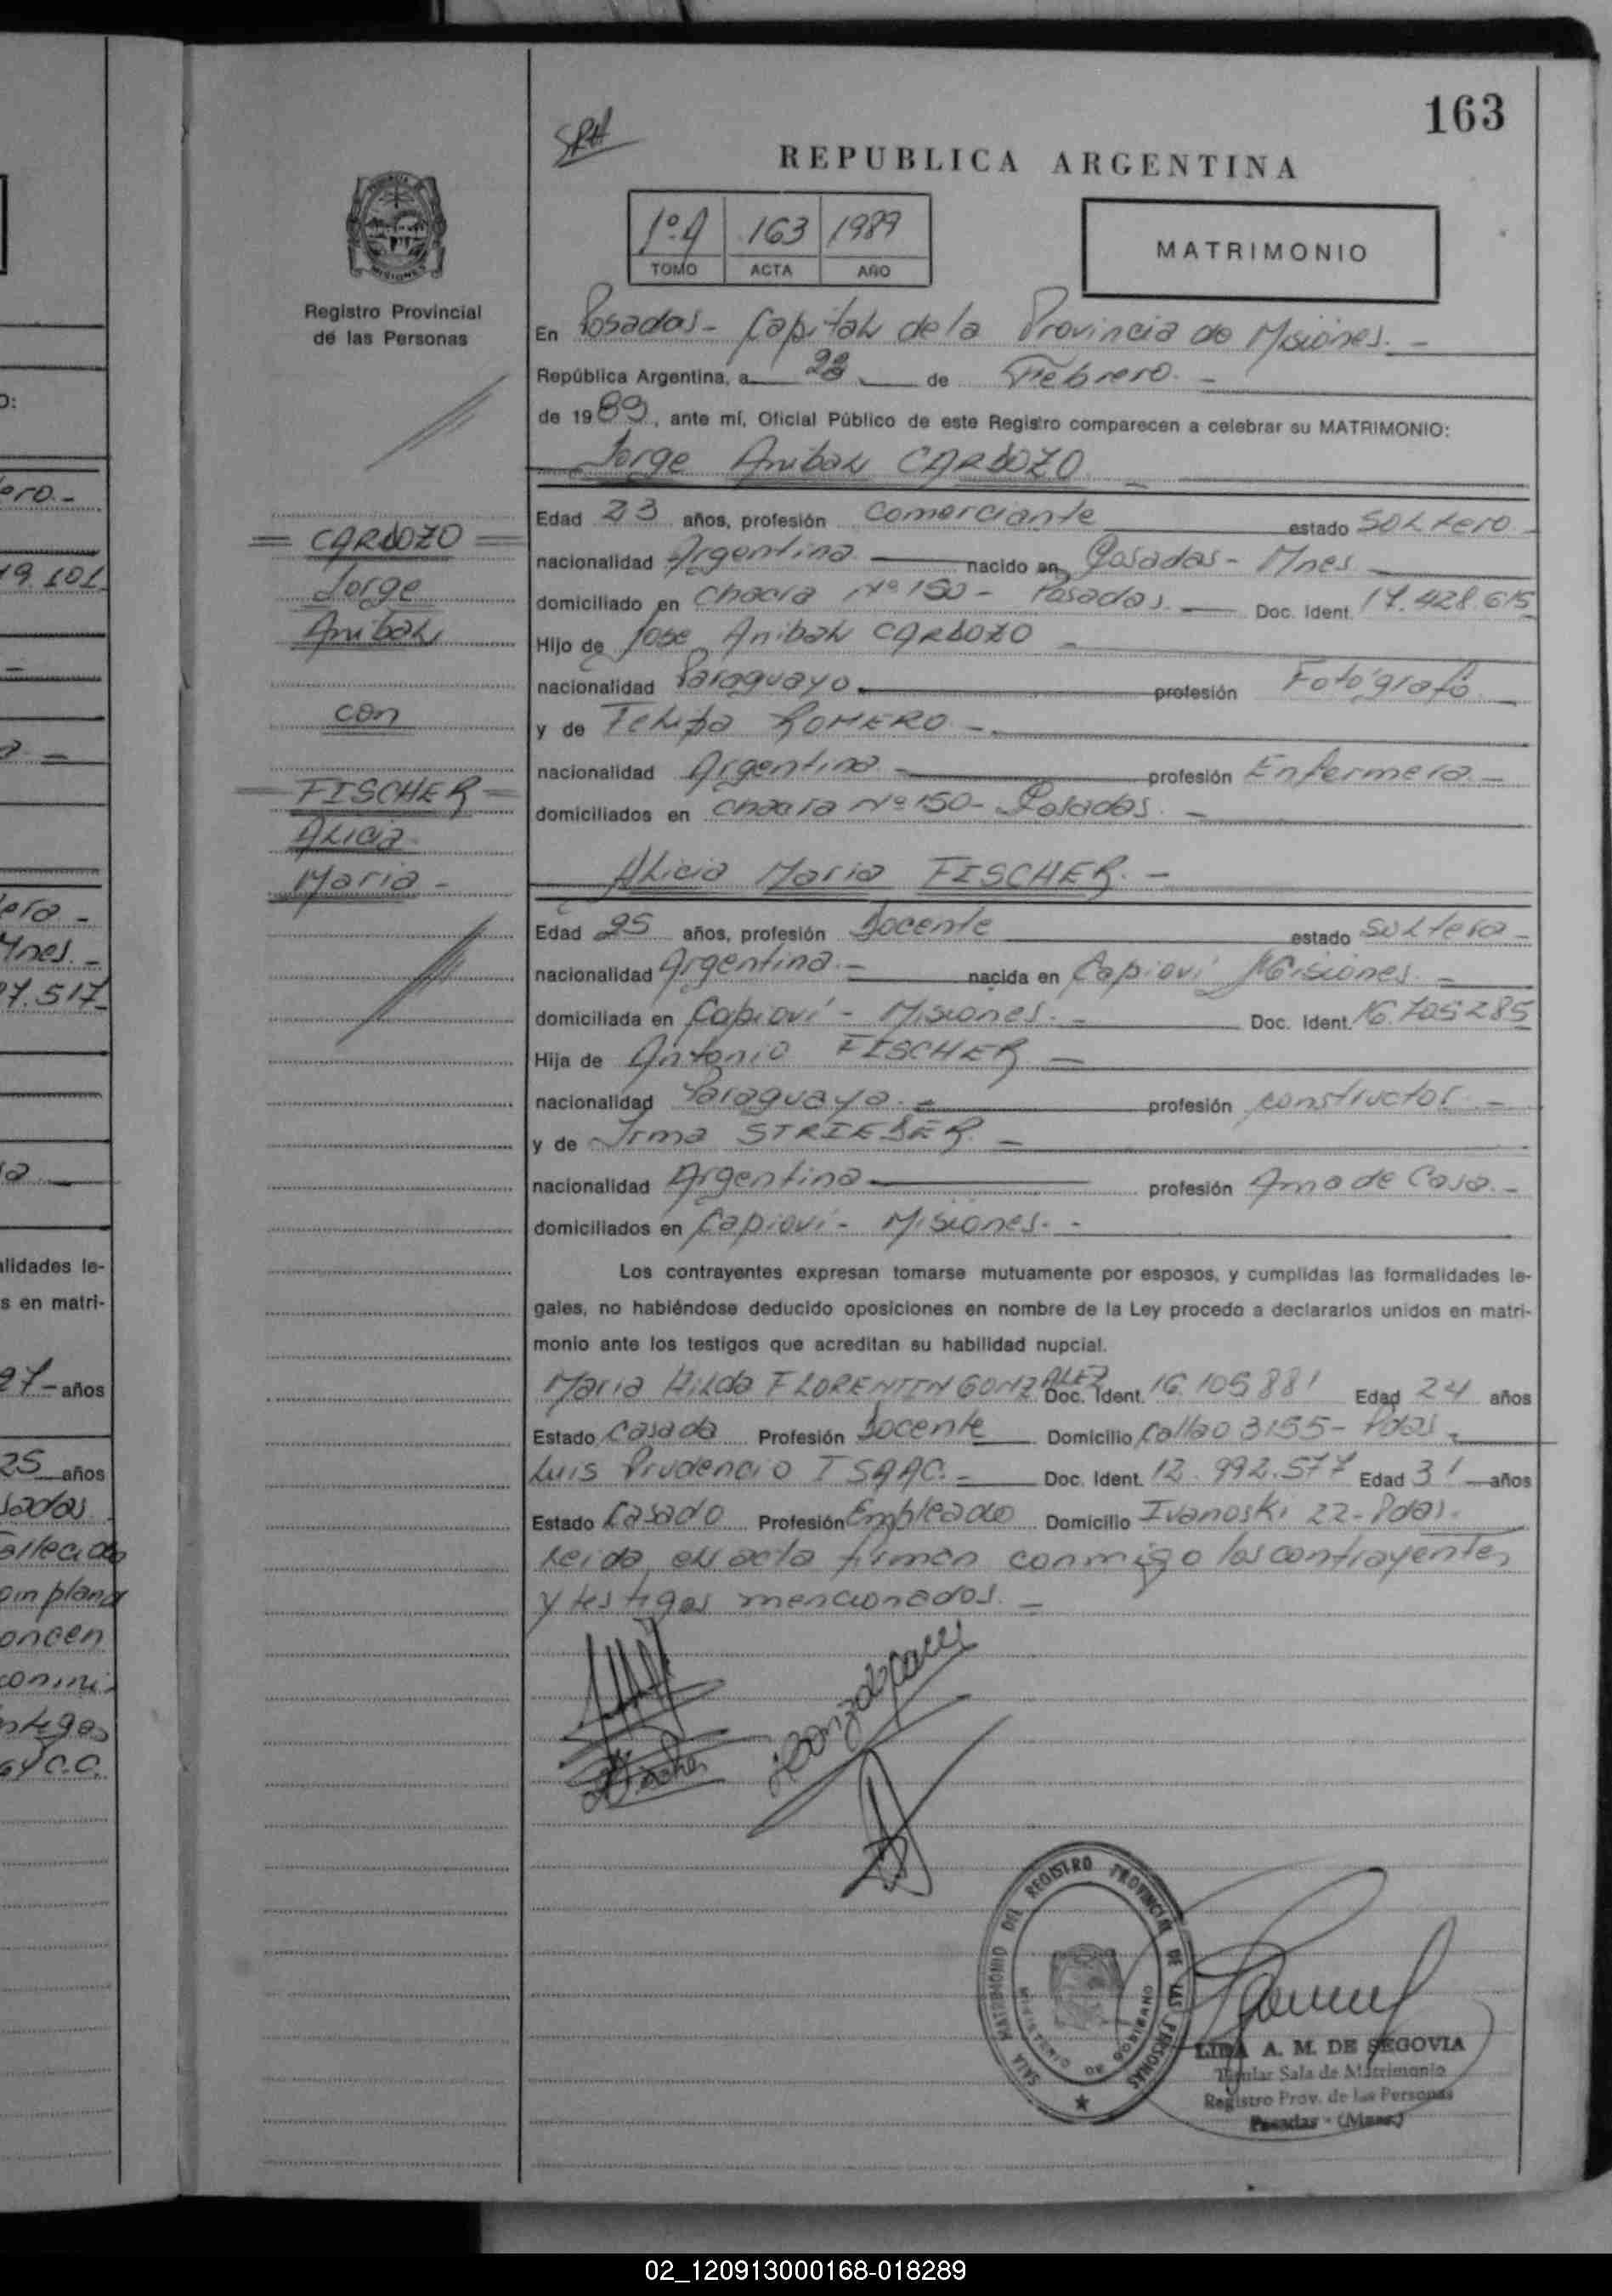 163
SRA
REPUBLICA ARGENTINA
1º A 163 1989
TOMO ACTA AÑO
MATRIMONIO
MISIONES
Registro Provincial
de las Personas
En Posadas - Capital de la Provincia de Misiones. -
República Argentina, a de Febrero. -
de 1989, ante mí, Oficial Público de este Registro comparecen a celebrar su MATRIMONIO:
Jorge Anibal CARDOZO -
Edad 23 años, profesión Comerciante estado Soltero -
= CARDOZO =
Jorge
Anibal
con
= FISCHER =
Alicia
Maria -
nacionalidad Argentina nacido en Posadas - Mnes
domiciliado en Chacra Nº 150 - Posadas. Doc. Ident. 17.428.615
Hijo de Jose Anibal CARDOZO -
nacionalidad Paraguayo profesión Fotógrafo
y de Felipa ROMERO -
nacionalidad Argentina - profesión Enfermera -
domiciliados en chacra Nº 150 - Posadas. -
Alicia Maria FISCHER. -
Edad 25 años, profesión Docente estado Soltera -
nacionalidad Argentina. - nacida en Capioví Misiones. -
domiciliada en Capioví - Misiones. - Doc. Ident. 16.705285
Hija de Antonio FISCHER -
nacionalidad Paraguaya. - profesión constructor -
y de Irma STRIEDER. -
nacionalidad Argentina profesión Ama de Casa. -
domiciliados en Capioví - Misiones. -
Los contrayentes expresan tomarse mutuamente por esposos, y cumplidas las formalidades le-
gales, no habiéndose deducido oposiciones en nombre de la Ley procedo a declararlos unidos en matri-
monio ante los testigos que acreditan su habilidad nupcial.
Maria Hilda FLORENTIN GONZALEZ Doc. Ident. 16.105881 Edad 24 años
Estado Casada Profesión Docente Domicilio Callao 3155 - Pdas -
Luis Prudencio ISAAC. - Doc. Ident. 12.992.577 Edad 31 años
Estado Casado Profesión Empleado Domicilio Ivanoski 22 - Pdas.
Leida el acta firman conmigo los contrayentes
y testigos mencionados. -
SALA MATRIMONIO DEL REGISTRO PROVINCIAL DE LAS PERSONAS
MINISTERIO DE GOBIERNO
LIDA A. M. DE SEGOVIA
Titular Sala de Matrimonio
Registro Prov. de las Personas
Posadas - (Mnes.)
ero. -
19.101
Mnes. -
97.517
alidades le-
s en matri-
27 - años
25 años
02_120913000168-018289